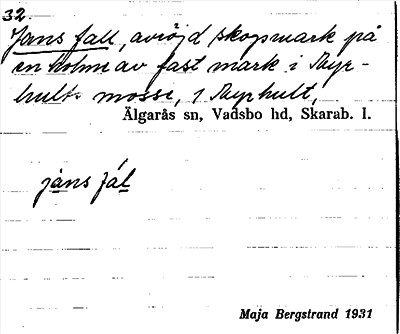 32.
Jans fall, avröjd skogsmark på
en holme av fast mark i Myr-
hults mosse, 1 Myrhult,
Älgarås sn, Vadsbo hd, Skarab. l.
jans fál
Maja Bergstrand 1931